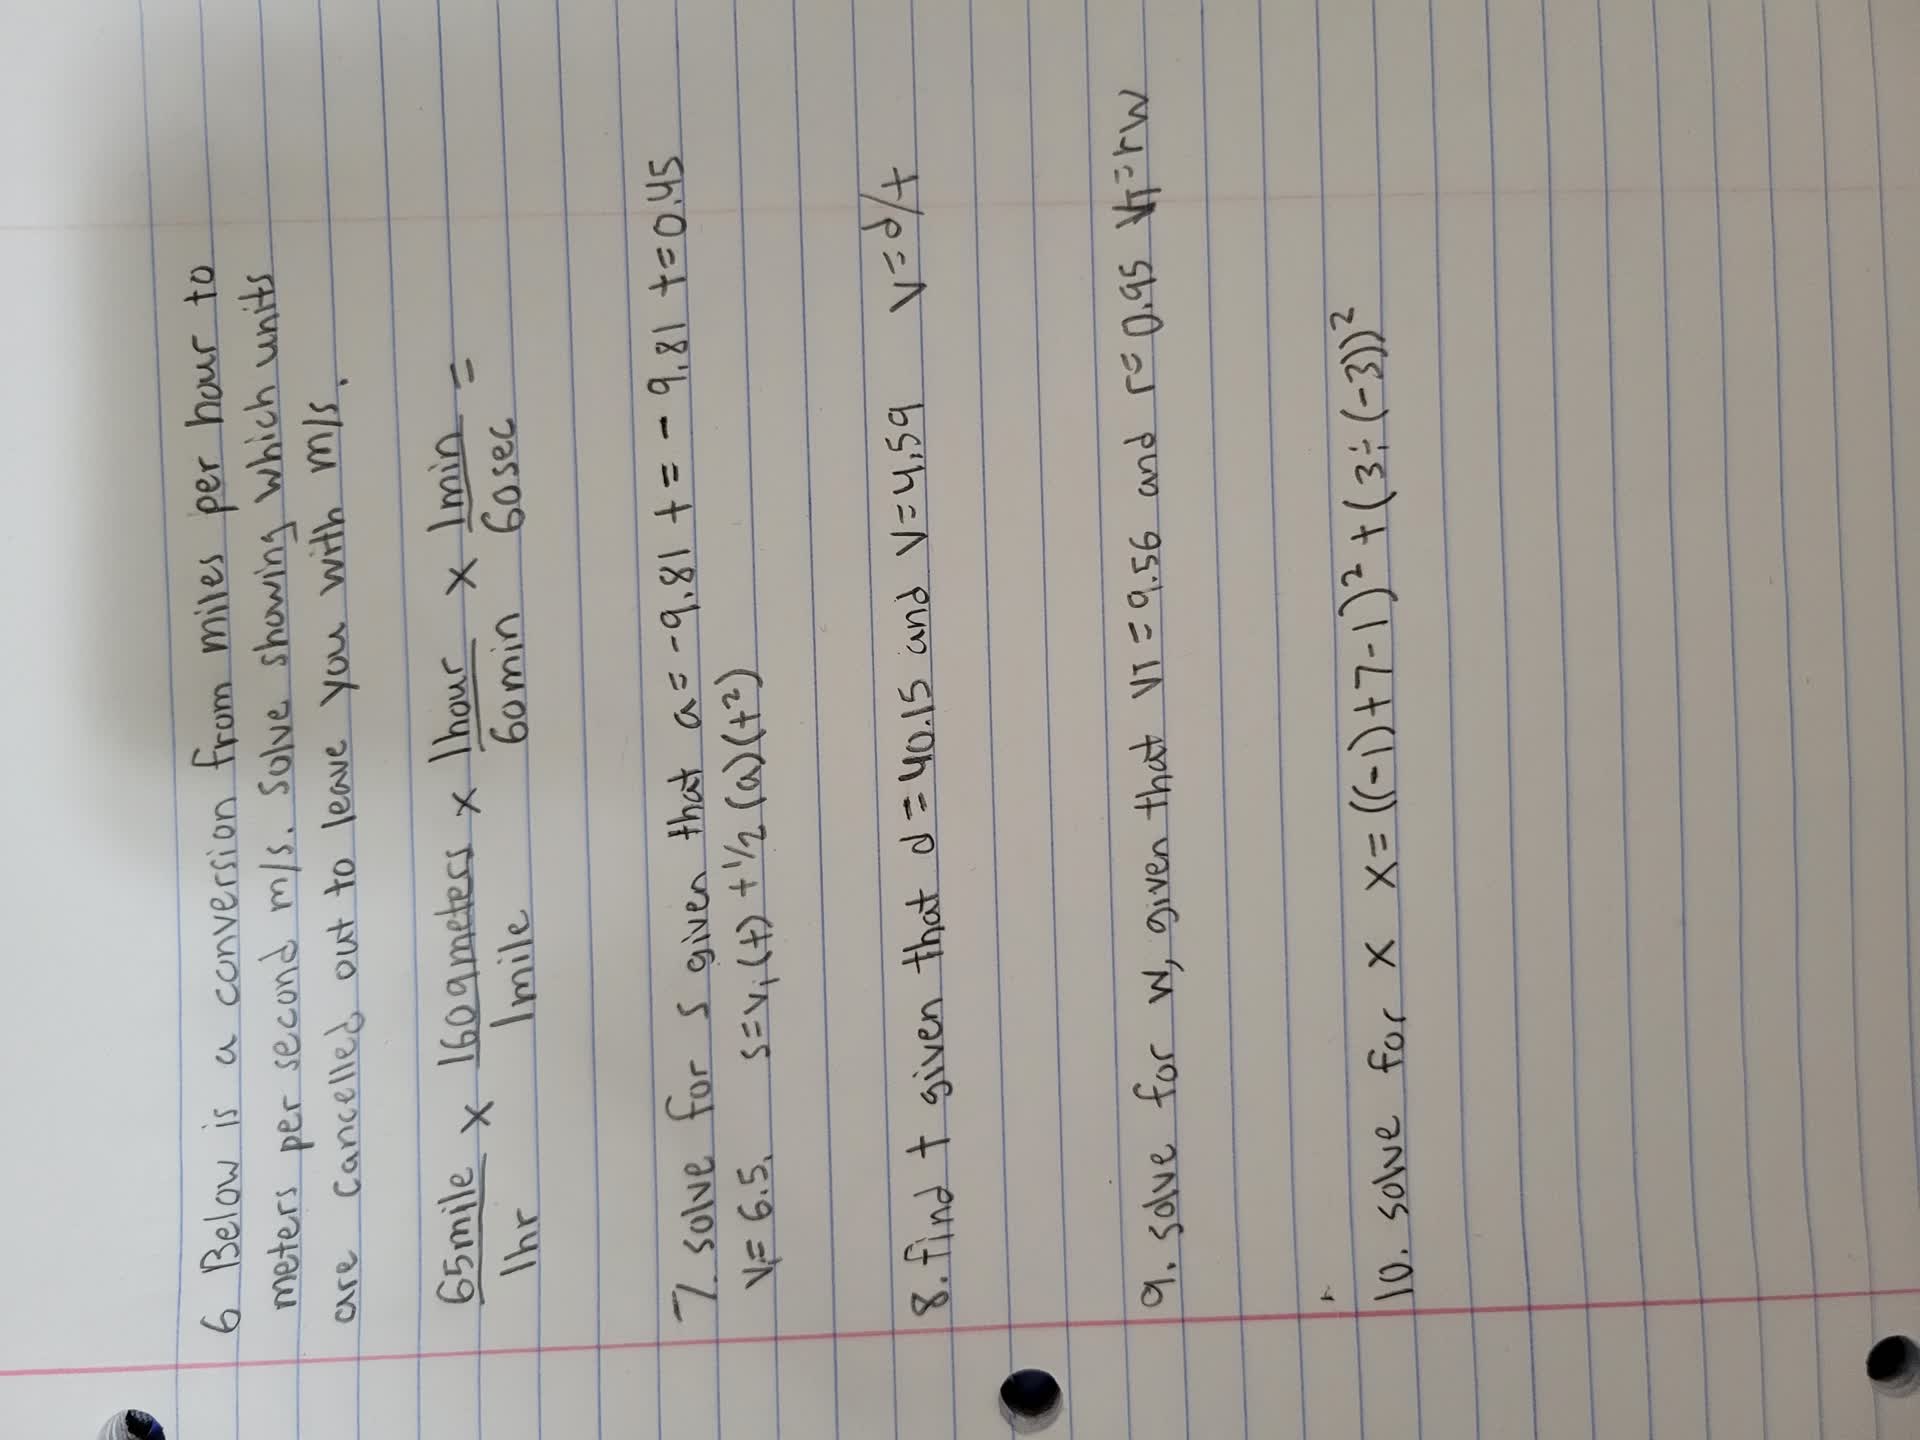 6 Below is a conversion from miles per hour to
meters per second m/s. Solve showing which units
are cancelled out to leave you with m/s.
65mile/1hr x 1609meters/1mile x 1hour/60min x 1min/60sec =
7. solve for s given that a=-9.81 t=-9.81 t=0.45
Vi=6.5. s=vi(t)+1/2(a)(t²)
8. find t given that d=40.15 and v=4.59 v=d/t
9. solve for w, given that VT=9.56 and r=0.95 VT=rw
10. solve for x x=((-1)+7-1)²+(3÷(-3))²